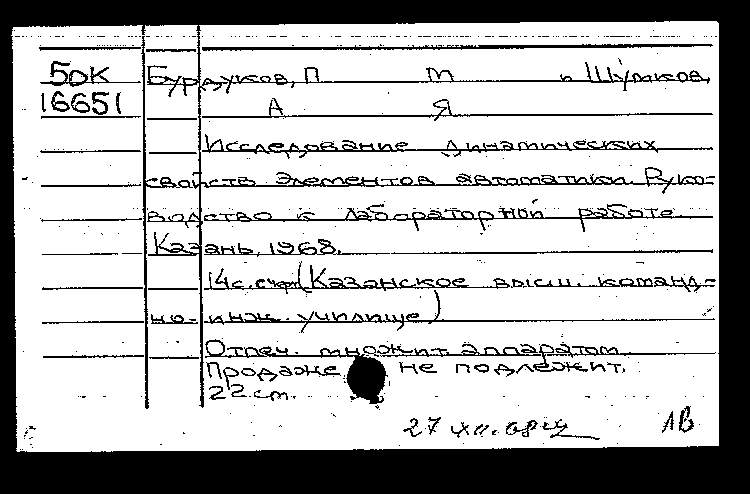 БОК Бурдуков, П М и Шутков,
16651 А Я
Исследование динамических
свойств элементов автоматики. Руко-
водство к лабораторной работе.
Казань, 1968.
14с. с черт. (Казанское высш. команд-
но-инж. училище)
Отпеч. множит. аппаратом.
Продаже не подлежит.
22 см.
27 XII. 68